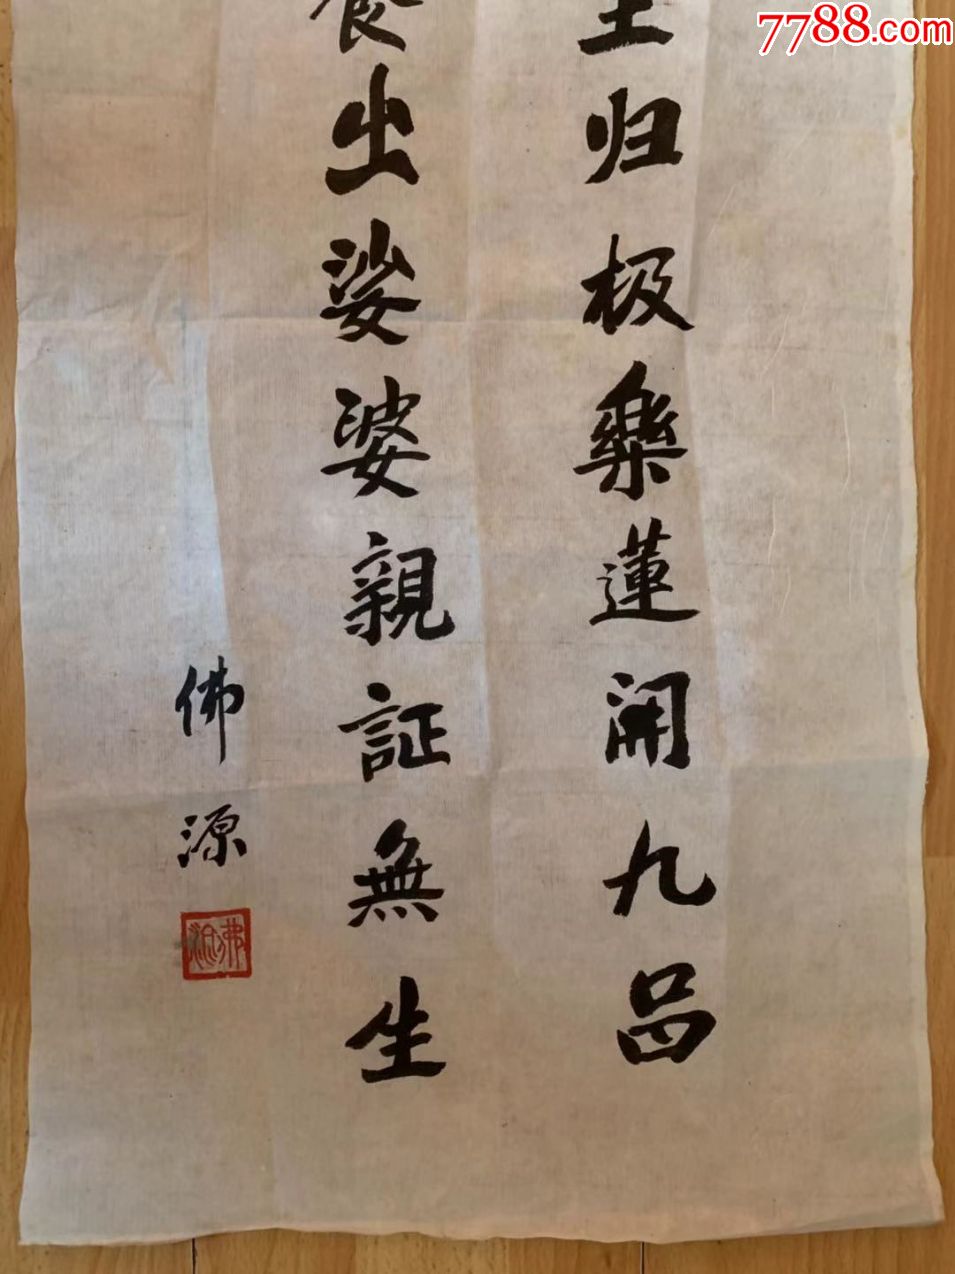 7788.com
归极樂蓮開九品
出娑婆親証無生
佛源